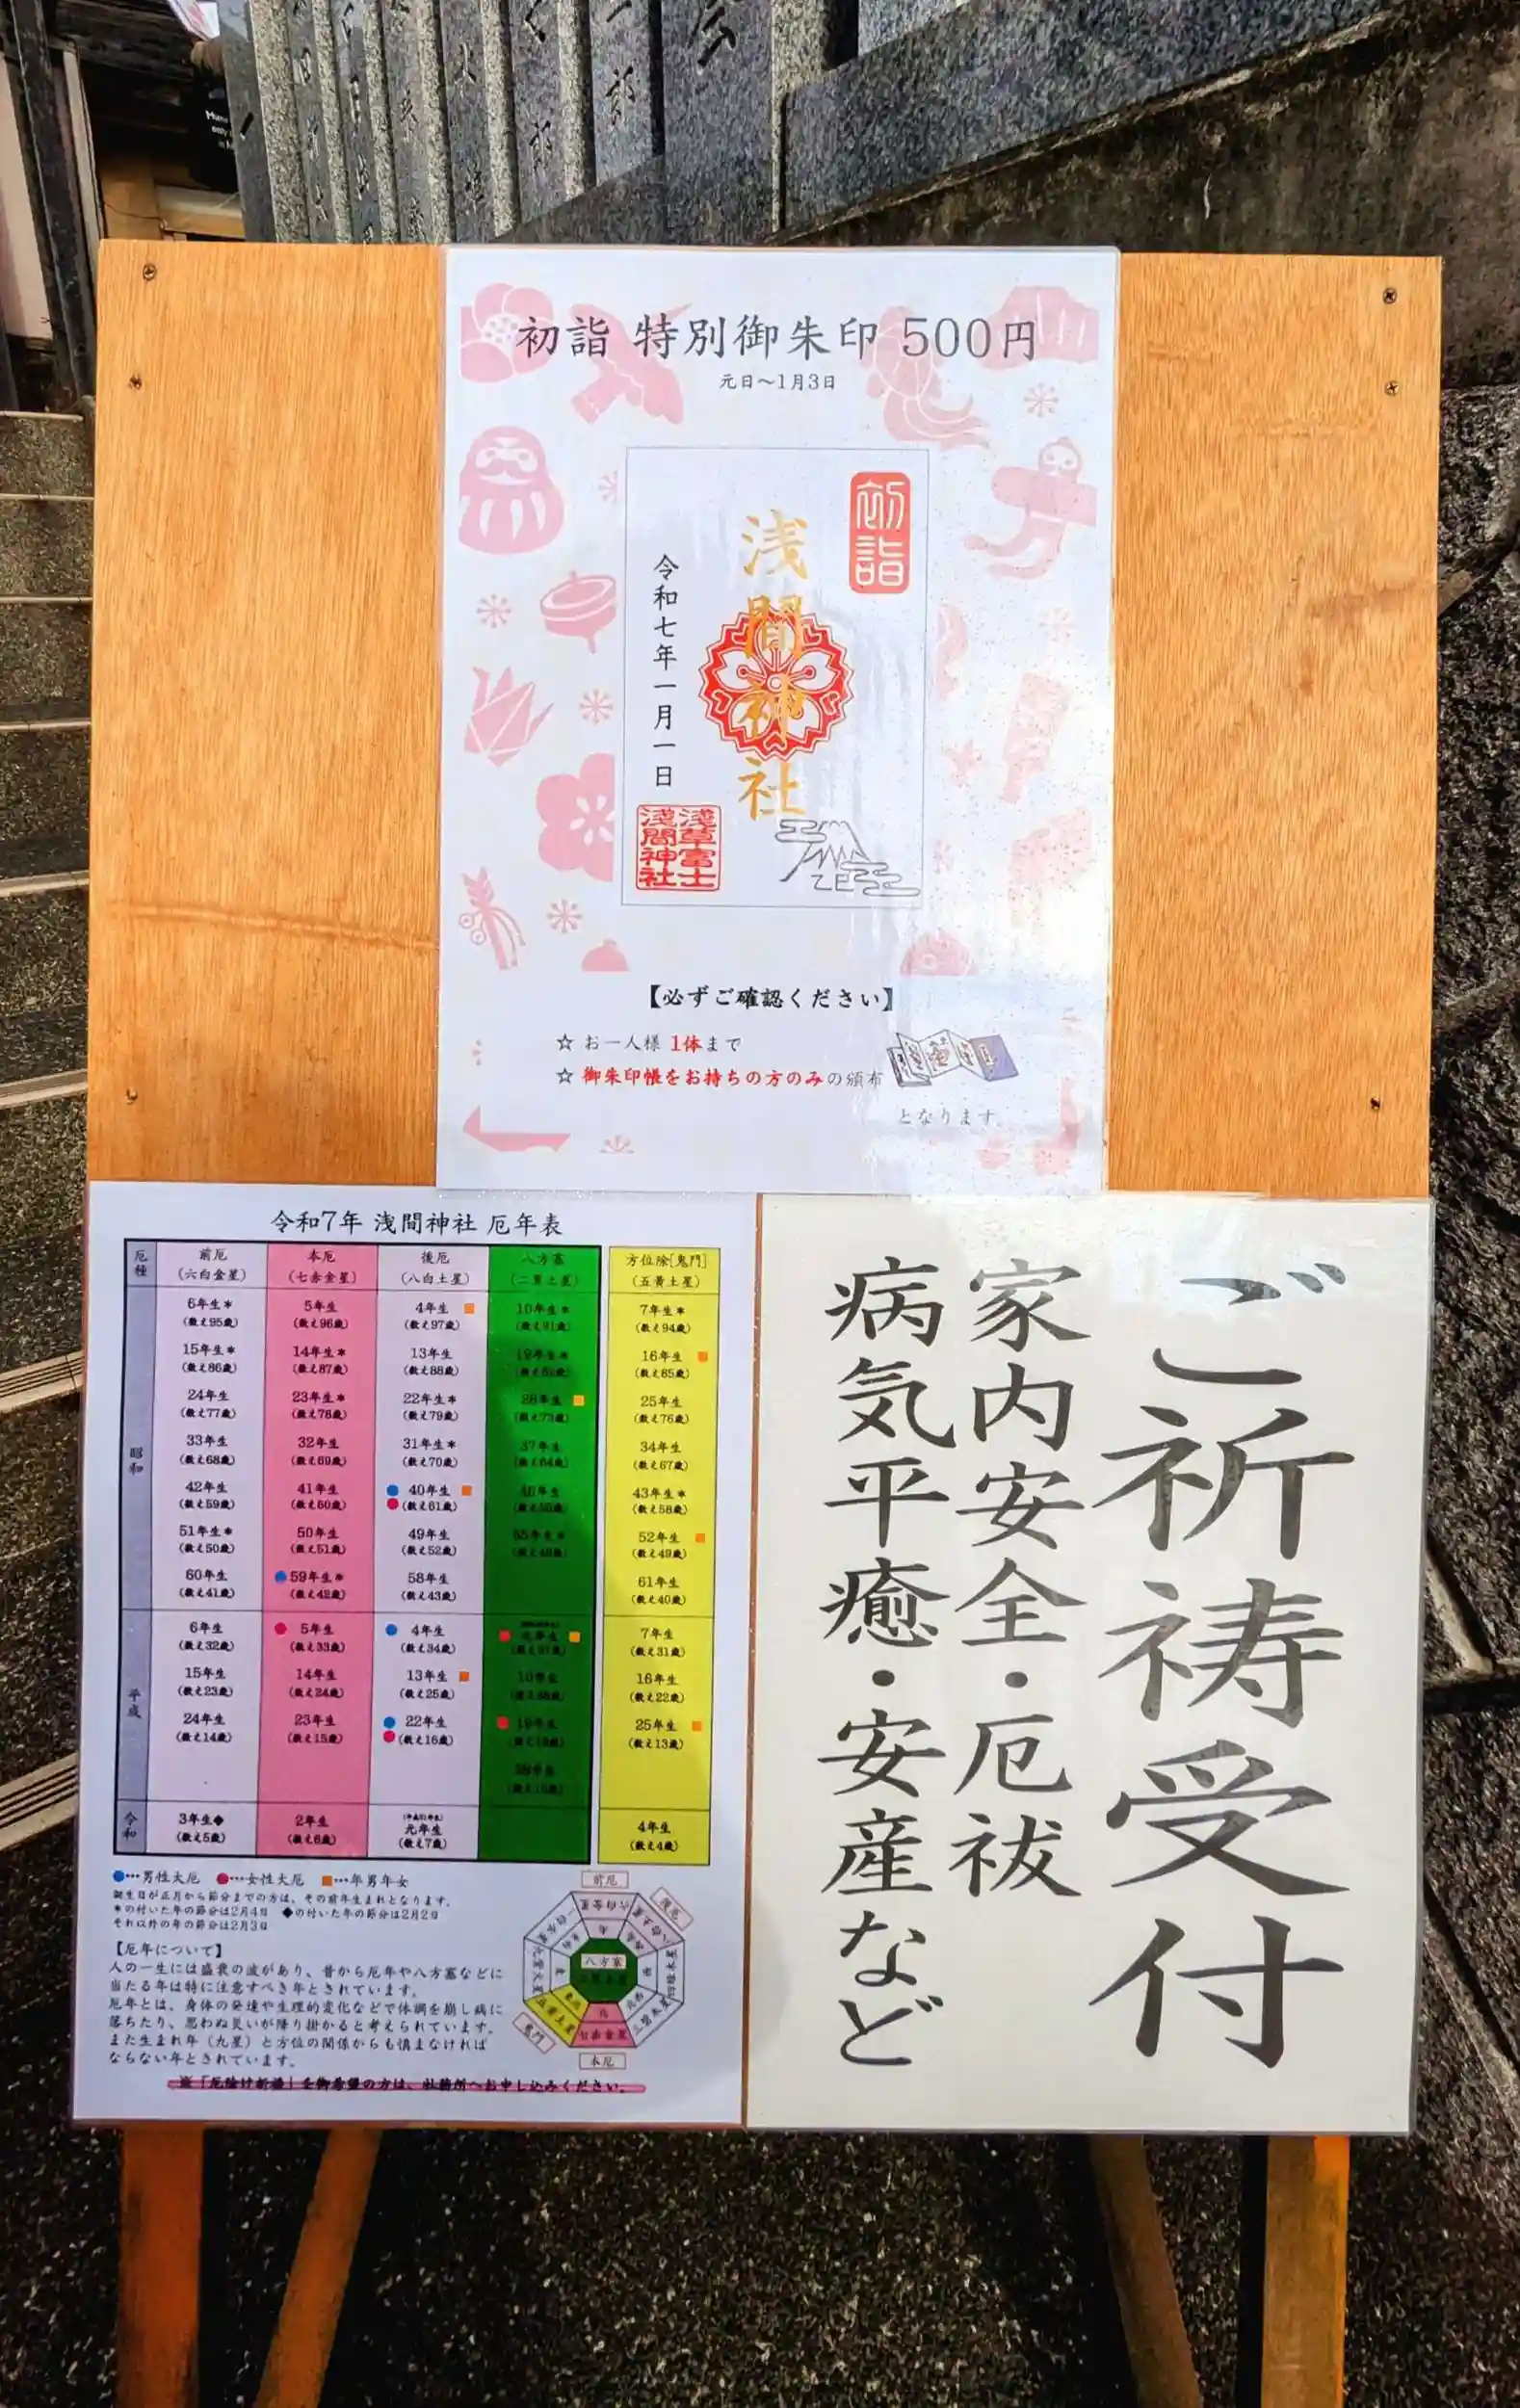 初詣 特別御朱印 500円
元日～1月3日
初詣
浅間神社
令和七年一月一日
浅草富士
浅間神社
【必ずご確認ください】
☆ お一人様 1体まで
☆ 御朱印帳をお持ちの方のみの頒布
となります。
令和7年 浅間神社 厄年表
厄種 前厄 本厄 後厄 八方塞 方位除[鬼門]
(六白金星) (七赤金星) (八白土星) (二黒土星) (五黄土星)
昭和
6年生* 5年生 4年生 10年生* 7年生*
(数え95歳) (数え96歳) (数え97歳) (数え91歳) (数え94歳)
15年生* 14年生* 13年生 19年生* 16年生
(数え86歳) (数え87歳) (数え88歳) (数え85歳)
24年生 23年生* 22年生* 28年生 25年生
(数え77歳) (数え78歳) (数え79歳) (数え73歳) (数え76歳)
33年生 32年生 31年生* 37年生 34年生
(数え68歳) (数え69歳) (数え70歳) (数え64歳) (数え67歳)
42年生 41年生 40年生 46年生 43年生*
(数え59歳) (数え60歳) (数え61歳) (数え58歳)
51年生* 50年生 49年生 55年生* 52年生
(数え50歳) (数え51歳) (数え52歳) (数え49歳)
60年生 59年生* 58年生 61年生
(数え41歳) (数え42歳) (数え43歳) (数え40歳)
平成
6年生 5年生 4年生 元年生 7年生
(数え32歳) (数え33歳) (数え34歳) (数え37歳) (数え31歳)
15年生 14年生 13年生 10年生 16年生
(数え23歳) (数え24歳) (数え25歳) (数え28歳) (数え22歳)
24年生 23年生 22年生 19年生 25年生
(数え14歳) (数え15歳) (数え16歳) (数え19歳) (数え13歳)
令和
3年生◆ 2年生 元年生 4年生
(数え5歳) (数え6歳) (数え7歳) (数え4歳)
●…男性大厄 ●…女性大厄 ■…年男年女
誕生日が正月から節分までの方は、その前年生まれとなります。
*の付いた年の節分は2月4日 ◆の付いた年の節分は2月2日
それ以外の年の節分は2月3日
【厄年について】
人の一生には盛衰の波があり、昔から厄年や八方塞などに
当たる年は特に注意すべき年とされています。
厄年とは、身体の発達や生理的変化などで体調を崩し病に
落ちたり、思わぬ災いが降り掛かると考えられています。
また生まれ年（九星）と方位の関係からも慎まなければ
ならない年とされています。
※「厄除け祈祷」を御希望の方は、社務所へお申し込みください。
前厄
後厄
八方塞
鬼門
本厄
七赤金星
五黄土星
六白金星
八白土星
一白水星
九紫火星
三碧木星
四緑木星
ご祈祷受付
家内安全・厄祓
病気平癒・安産など